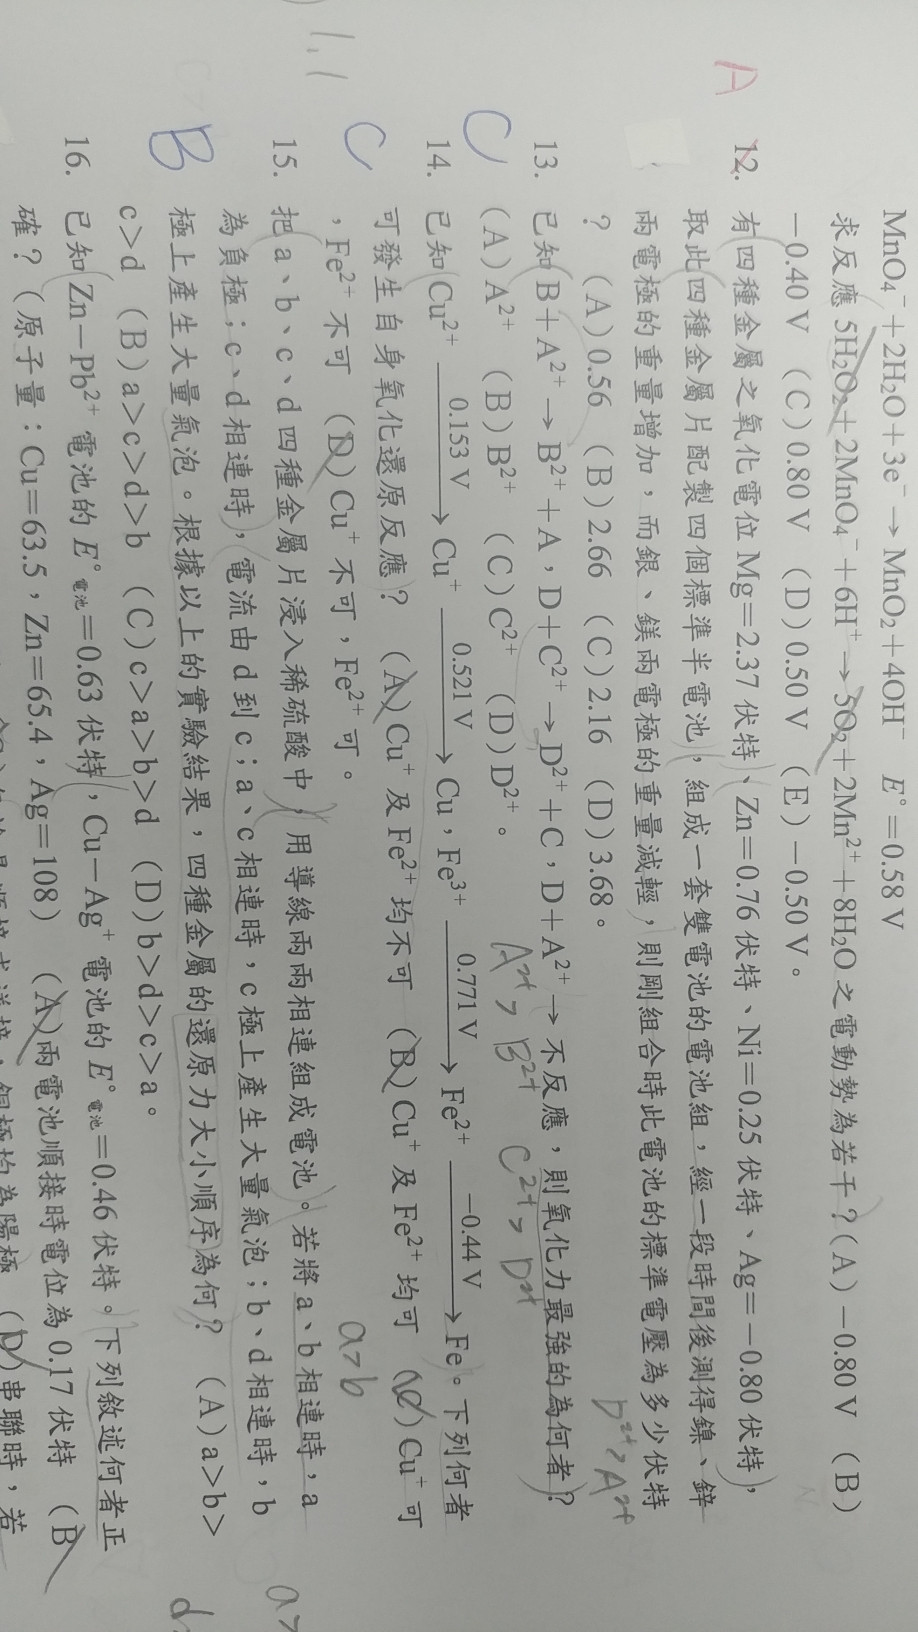 MnO₄⁻+2H₂O+3e⁻→MnO₂+4OH⁻ E°=0.58 V
求反應 5H₂O₂+2MnO₄⁻+6H⁺→5O₂+2Mn²⁺+8H₂O 之電動勢為若干？(A)-0.80 V (B)
-0.40 V (C)0.80 V (D)0.50 V (E)-0.50 V。
A 12. 有四種金屬之氧化電位 Mg=2.37 伏特、Zn=0.76 伏特、Ni=0.25 伏特、Ag=-0.80 伏特，
取此四種金屬片配製四個標準半電池，組成一套雙電池的電池組，經一段時間後測得鎳、鋅
兩電極的重量增加，而銀、鎂兩電極的重量減輕，則剛組合時此電池的標準電壓為多少伏特
？ (A)0.56 (B)2.66 (C)2.16 (D)3.68。
D²⁺>A²⁺
13. 已知 B+A²⁺→B²⁺+A，D+C²⁺→D²⁺+C，D+A²⁺→不反應，則氧化力最強的為何者？
C (A)A²⁺ (B)B²⁺ (C)C²⁺ (D)D²⁺。 A²⁺>B²⁺ C²⁺>D²⁺
14. 已知 Cu²⁺ —0.153 V→ Cu⁺ —0.521 V→ Cu，Fe³⁺ —0.771 V→ Fe²⁺ —-0.44 V→ Fe。下列何者
可發生自身氧化還原反應？ (A)Cu⁺及Fe²⁺均不可 (B)Cu⁺及Fe²⁺均可 (C)Cu⁺可
C ，Fe²⁺不可 (D)Cu⁺不可，Fe²⁺可。
a>b
1.1
15. 把 a、b、c、d 四種金屬片浸入稀硫酸中，用導線兩兩相連組成電池。若將 a、b 相連時，a
為負極；c、d 相連時，電流由 d 到 c；a、c 相連時，c 極上產生大量氣泡；b、d 相連時，b
B 極上產生大量氣泡。根據以上的實驗結果，四種金屬的還原力大小順序為何？ (A)a>b>
c>d (B)a>c>d>b (C)c>a>b>d (D)b>d>c>a。
16. 已知 Zn-Pb²⁺ 電池的 E°電池=0.63 伏特，Cu-Ag⁺ 電池的 E°電池=0.46 伏特。下列敘述何者正
確？(原子量：Cu=63.5，Zn=65.4，Ag=108) (A)兩電池順接時電位為 0.17 伏特 (B
銅極均為陽極 (D)串聯時，若